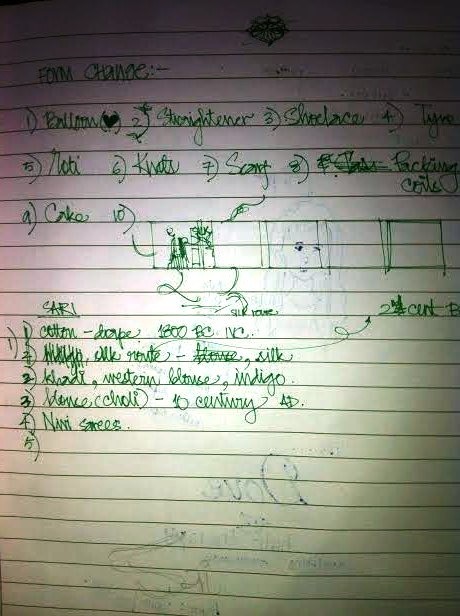 FORM CHANGE:-
1) Balloon(♥) 2) Straightener 3) Shoelace 4) Tyre
5) Roti 6) Knots 7) Scarf 8) Packing coils
9) Cake 10)
silk route
SARI
1) Cotton - drape 1800 BC. IVC.
silk route - blouse, silk
2) Khadi, western blouse, indigo.
3) blouse (choli) - 10 century AD.
4) Nivi sarees.
5)